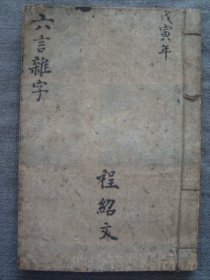 戊寅年
六言雜字
程紹文